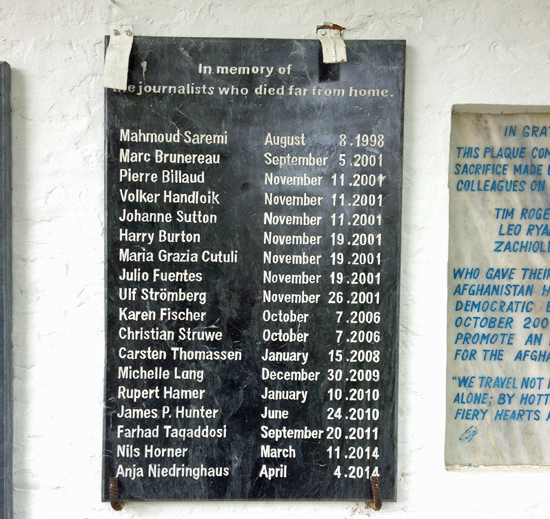 In memory of
the journalists who died far from home.
Mahmoud Saremi August 8.1998
Marc Brunereau September 5.2001
Pierre Billaud November 11.2001
Volker Handloik November 11.2001
Johanne Sutton November 11.2001
Harry Burton November 19.2001
Maria Grazia Cutuli November 19.2001
Julio Fuentes November 19.2001
Ulf Strömberg November 26.2001
Karen Fischer October 7.2006
Christian Struwe October 7.2006
Carsten Thomassen January 15.2008
Michelle Lang December 30.2009
Rupert Hamer January 10.2010
James P. Hunter June 24.2010
Farhad Taqaddosi September 20.2011
Nils Horner March 11.2014
Anja Niedringhaus April 4.2014
IN
THIS PLAQUE
SACRIFICE MADE
COLLEAGUES ON
TIM
LEO
WHO GAVE THEIR
AFGHANISTAN
DEMOCRATIC
OCTOBER
PROMOTE AN
FOR THE
"WE TRAVEL NOT
ALONE; BY
FIERY HEARTS